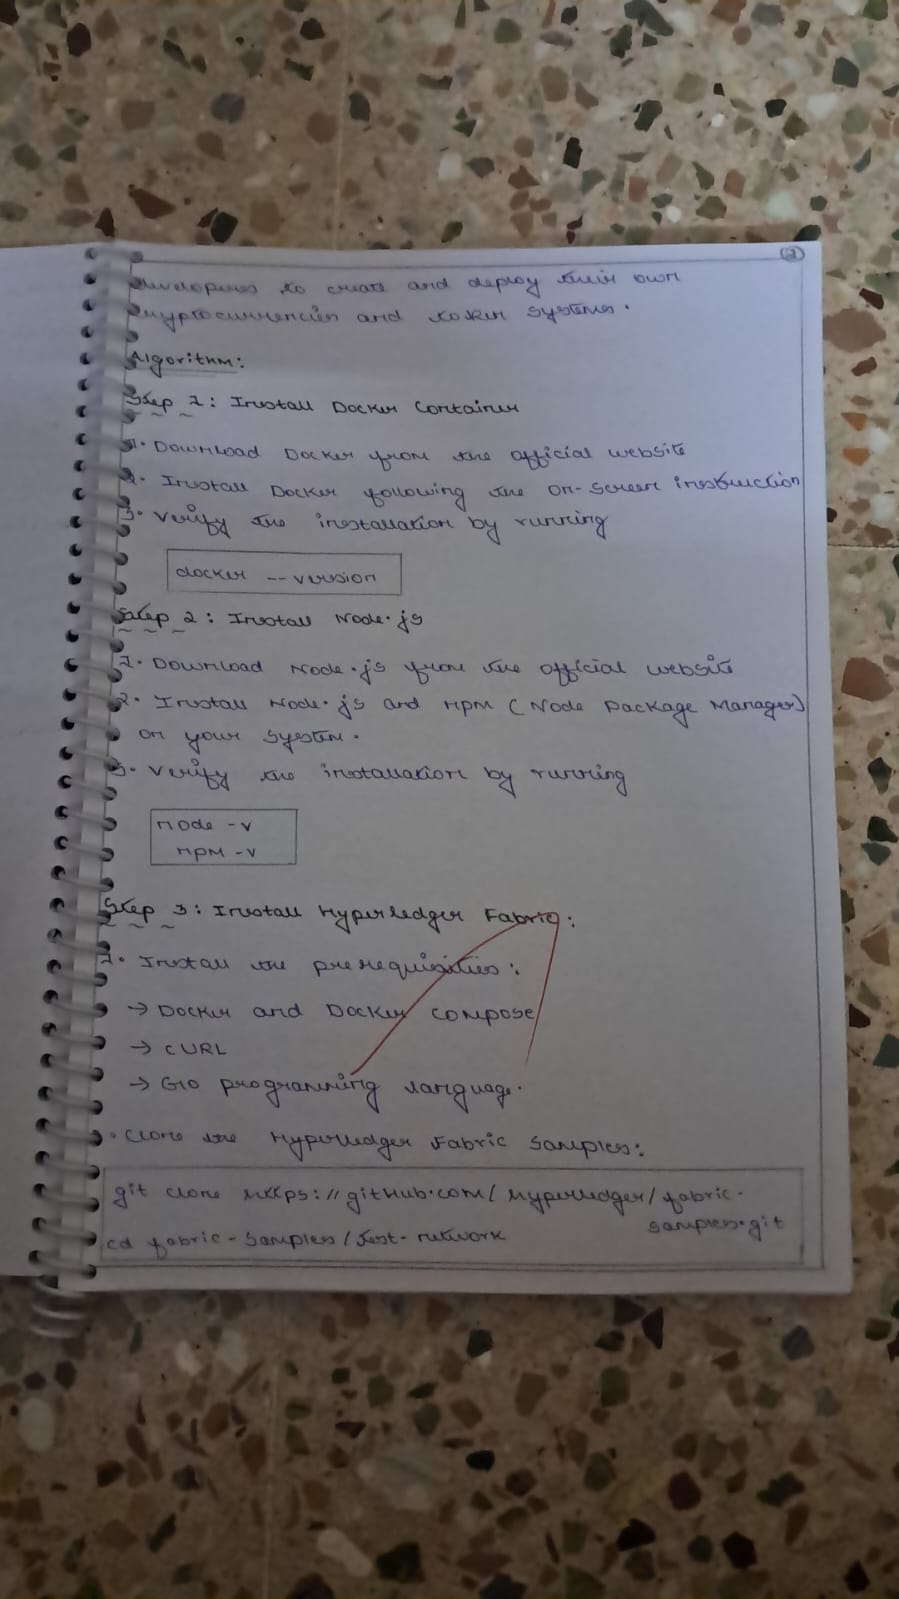 2
developers to create and deploy their own
cryptocurrencies and token systems.
Algorithm:
Step 1: Install Docker Container
1. Download Docker from the official website
2. Install Docker following the on-screen instruction
3. Verify the installation by running
docker --version
Step 2: Install Node.js
1. Download Node.js from the official website
2. Install Node.js and npm (Node Package Manager)
on your system.
3. Verify the installation by running
node -v
npm -v
Step 3: Install Hyperledger Fabric:
1. Install the prerequisities:
→ Docker and Docker compose
→ cURL
→ Go programming language.
• Clone the Hyperledger Fabric Samples:
git clone https://github.com/hyperledger/fabric-
samples.git
cd fabric-samples/test-network